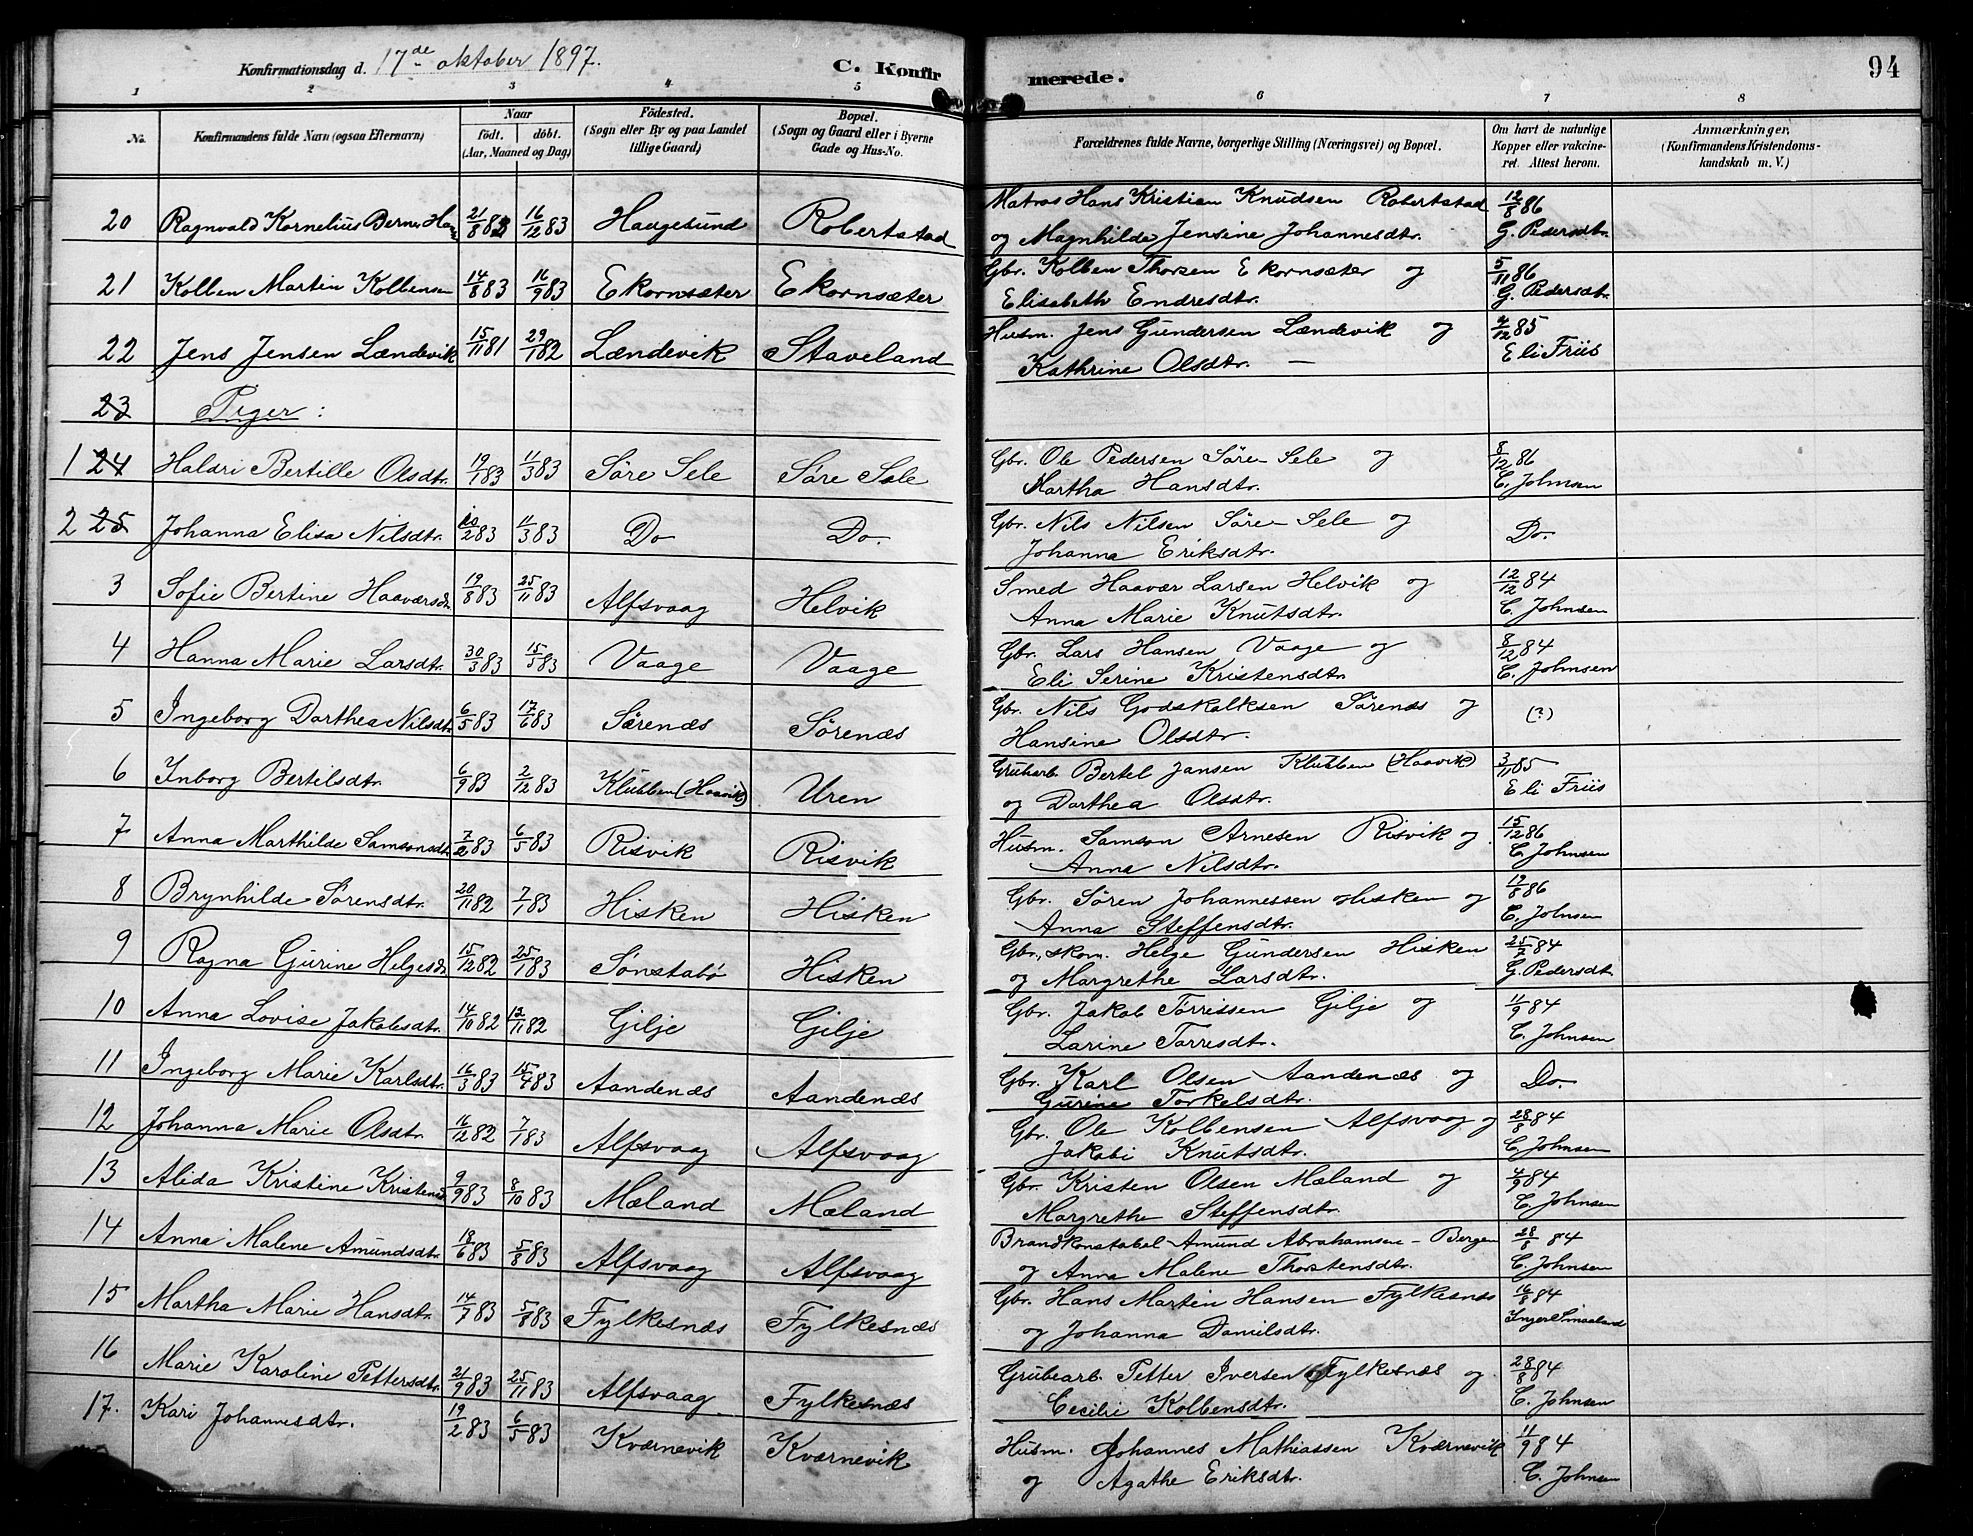 Konfirmationsdag d. 17de oktober 1897.
C. Konfirmerede.
94
1 2 3 4 5 6 7 8
No. | Konfirmandens fulde Navn (ogsaa Efternavn) | Naar født. døbt. (Aar, Maaned og Dag) | Fødested. (Sogn eller By og paa Landet tillige Gaard) | Bopæl. (Sogn og Gaard eller i Byerne Gade og Hus-No. | Forældrenes fulde Navne, borgerlige Stilling (Næringsvei) og Bopæl. | Om havt de naturlige Kopper eller vakcineret. Attest herom. | Anmærkninger, (Konfirmandens Kristendomskundskab m. V.)
20 Ragnvald Kornelius Berner 21/8 16/12 83 Haugesund Robertstad Matros Hans Kristian Knudsen Robertstad 12/8 86
og Magnhilde Jensine Johannesdtr. G. Pedersdtr.
21 Kolben Martin Kolbensen 14/8 83 16/9 83 Ekornsæter Ekornsæter Gbr. Kolben Thorsen Ekornsæter og 5/11 86
Elisabeth Endresdtr. G. Pedersdtr.
22 Jens Jensen Lændevik 15/11 81 29/1 82 Lændevik Staveland Husm. Jens Gundersen Lændevik og 4/12 85
Kathrine Olsdtr. — Eli Friis
23 Piger :
1 24 Haldri Bertille Olsdtr. 19/1 83 11/3 83 Søre Sele Søre Sele Gbr. Ole Pedersen Søre Sele og 8/12 86
Martha Hansdtr. C. Johnsen
2 25 Johanna Elisa Nilsdtr. 10/2 83 11/3 83 Do Do. Gbr. Nils Nilsen Søre Sele og Do.
Johanna Eriksdtr.
3 Sofie Bertine Haaversdtr. 19/8 83 25/11 83 Alfsvaag Helvik Smed Haavær Larsen Helvik og 12/12 84
Anna Marie Knutsdtr. C. Johnsen
4 Hanna Marie Larsdtr. 30/3 83 15/5 83 Vaage Vaage Gbr. Lars Hansen Vaage og 8/12 84
Eli Serine Kristensdtr. C. Johnsen
5 Ingeborg Dorthea Nilsdtr. 6/5 83 17/6 83 Sørenæs Sørenæs Gbr. Nils Godskalksen Sørenæs og (?)
Hansine Olsdtr.
6 Inborg Bertilsdtr. 6/9 83 2/12 83 Klubben (Haavik) Uren Grubarb. Bertel Jansen Klubben (Haavik) 3/11 85
og Dorthea Olsdtr. Eli Friis
7 Anna Marthilde Samsonsdtr. 7/2 83 6/5 83 Risvik Risvik Husm. Samson Arnesen Risvik og 15/12 86
Anna Nilsdtr. C. Johnsen
8 Brynhilde Sørensdtr. 20/11 82 7/1 83 Hisken Hisken Gbr. Søren Johannessen Hisken og 19/8 86
Anna Steffensdtr. C. Johnsen
9 Ragna Gurine Helgesdtr. 15/12 82 25/1 83 Sønstabø Hisken Gbr., skom. Helge Gundersen Hisken 25/7 84
og Margrethe Larsdtr. G. Pedersdtr.
10 Anna Lovise Jakobsdtr. 14/10 82 12/11 82 Gilje Gilje Gbr. Jakob Torrissen Gilje og 11/9 84
Larine Torresdtr. C. Johnsen
11 Ingeborg Marie Karlsdtr. 16/3 83 15/4 83 Aandenæs Aandenæs Gbr. Karl Olsen Aandenæs og Do.
Gurine Torkelsdtr.
12 Johanna Marie Olsdtr. 16/12 82 7/1 83 Alfsvaag Alfsvaag Gbr. Ole Kolbensen Alfsvaag og 28/8 84
Jakobi Knutsdtr. C. Johnsen
13 Alida Kristine Kristensdtr. 9/9 83 8/10 83 Mæland Mæland Gbr. Kristen Olsen Mæland og 4/9 84
Margrethe Steffensdtr. C. Johnsen
14 Anna Malene Amundsdtr. 18/6 83 5/8 83 Alfsvaag Alfsvaag Brandkonstabel Amund Abrahamsen – Bergen 28/8 84
og Anna Malene Thorstensdtr. C. Johnsen
15 Martha Marie Hansdtr. 14/7 83 5/8 83 Fylkesnæs Fylkesnæs Gbr. Hans Martin Hansen Fylkesnæs 16/8 84
og Johanna Danielsdtr. Inger
16 Marie Karoline Pettersdtr. 21/9 83 25/11 83 Alfsvaag Fylkesnæs Grubearb. Petter Iversen Fylkesnæs og 28/8 84
Cecilie Kolbensdtr. C. Johnsen
17. Kari Johannesdtr. 19/2 83 6/5 83 Kværnevik Kværnevik Husm. Johannes Mathiassen Kværnevik 11/9 84
og Agathe Eriksdtr. C. Johnsen